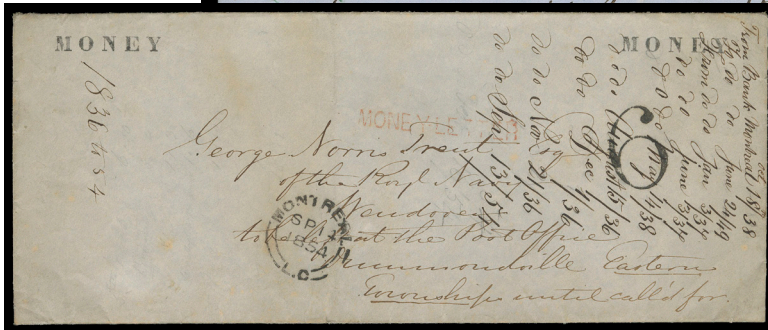 MONEY
MONEY
1836 to 54
MONEY LETTER
George Norris Trent Esq
of the Royl Navy
Wendover
to be left at the Post Office
Drummondville Eastern
Townships until call'd for.
MONTREAL
SP 14
1854
L.C
6
From Bank Montreal Oct 1838
do do June 24/49
From do do Jan 3/34
do do June 5/34
do do May 4/38
do do August 15/36
do do Dec 4/36
do do Nov 21/36
do do Sep 13/54